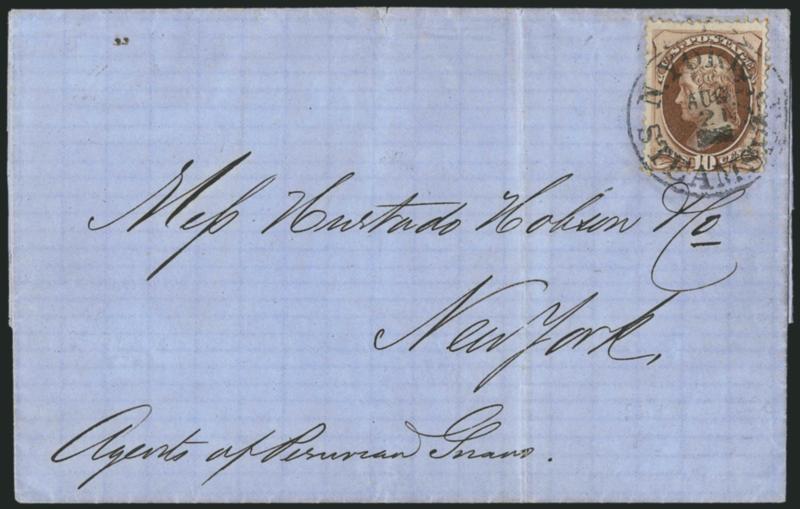 U.S. POSTAGE
N. YORK
AUG
2
STEAMSHIP
10
Mess Hurtado Hobson & Co
New York,
Agents of Peruvian Guano.